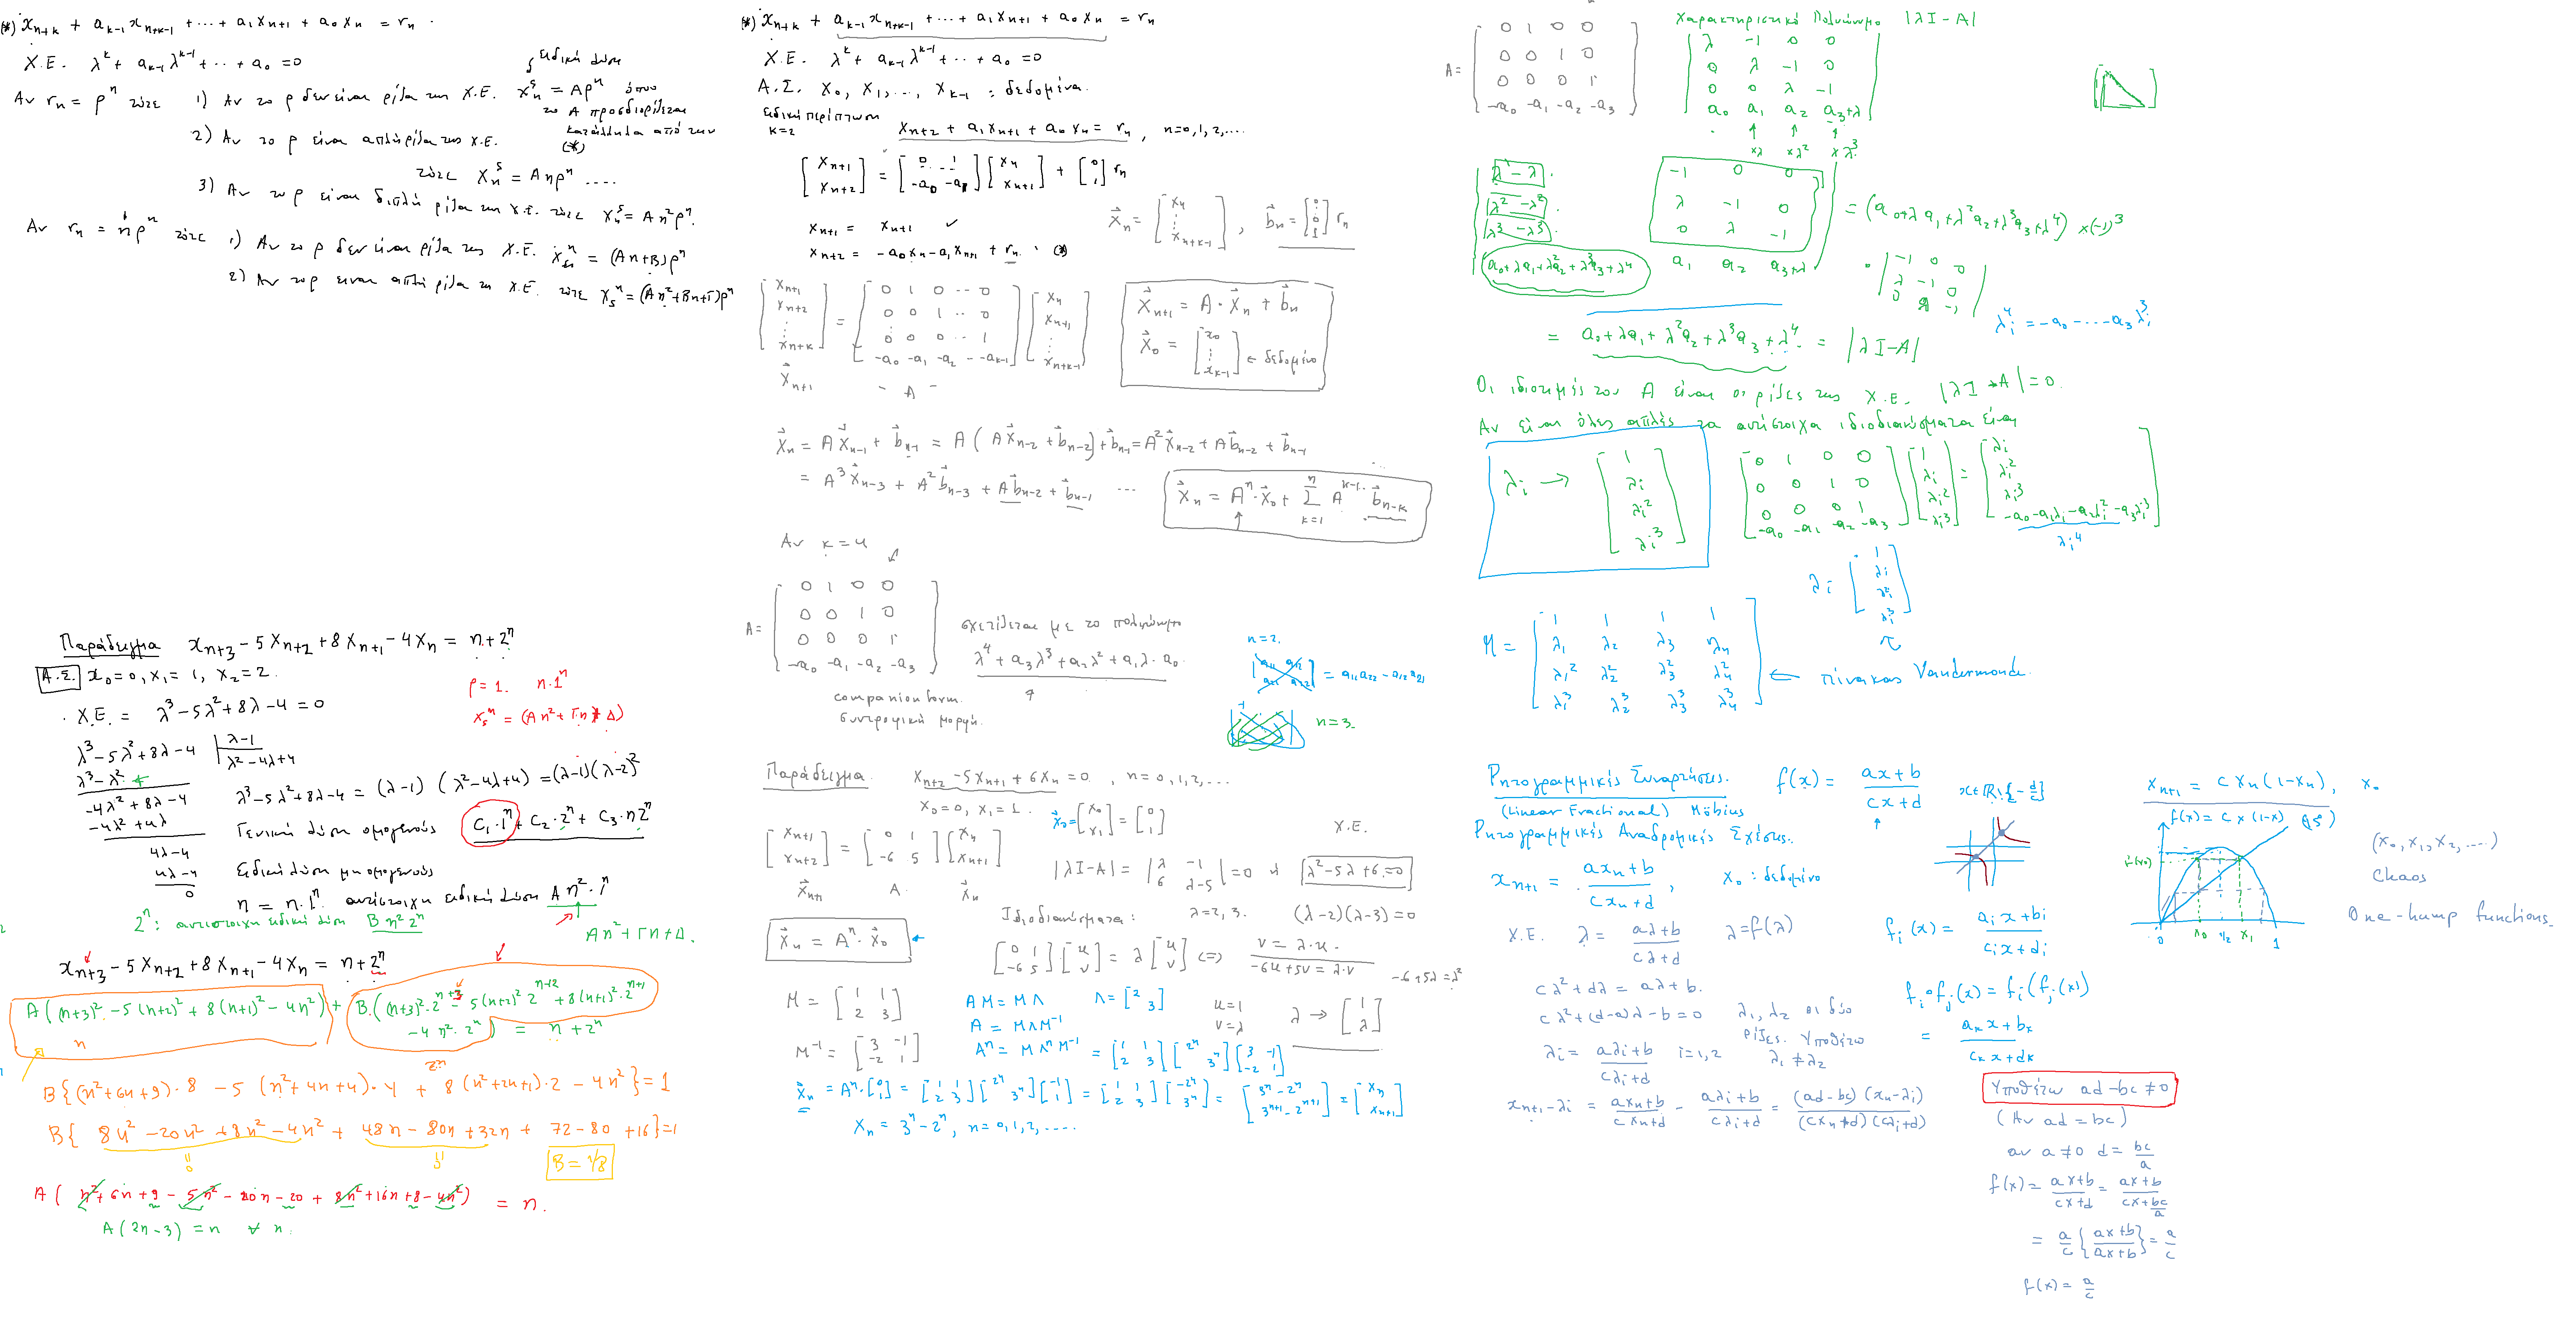 (*) x_{n+k} + a_{k-1} x_{n+k-1} + ... + a_1 x_{n+1} + a_0 x_n = r_n .
Χ.Ε. λ^k + a_{k-1} λ^{k-1} + ... + a_0 = 0
ειδική λύση
Αν r_n = ρ^n τότε 1) Αν το ρ δεν είναι ρίζα της Χ.Ε. x_n^s = Aρ^n όπου
το A προσδιορίζεται
κατάλληλα από την
(*)
2) Αν το ρ είναι απλή ρίζα της Χ.Ε.
τότε x_n^s = A n ρ^n ....
3) Αν το ρ είναι διπλή ρίζα της Χ.Ε. τότε x_n^s = A n^2 ρ^n.
Αν r_n = n ρ^n τότε 1) Αν το ρ δεν είναι ρίζα της Χ.Ε. x_s^n = (An+B)ρ^n
2) Αν το ρ είναι απλή ρίζα τη Χ.Ε. τότε x_s^n = (An^2+Bn+Γ)ρ^n
Παράδειγμα x_{n+3} - 5x_{n+2} + 8x_{n+1} - 4x_n = n + 2^n
Α.Σ. x_0 = 0, x_1 = 1, x_2 = 2.
ρ = 1. n·1^n
Χ.Ε. = λ^3 - 5λ^2 + 8λ - 4 = 0
x_s^n = (An^2 + Γn + Δ)
λ^3 - 5λ^2 + 8λ - 4 | λ-1
λ^3 - λ^2 λ^2 - 4λ + 4
-4λ^2 + 8λ - 4
-4λ^2 + 4λ
4λ - 4
4λ - 4
0
λ^3 - 5λ^2 + 8λ - 4 = (λ-1) (λ^2 - 4λ + 4) = (λ-1)(λ-2)^2
Γενική λύση ομογενούς C_1·1^n + C_2·2^n + C_3·n2^n
Ειδική λύση μη ομογενούς
n = n·1^n αντίστοιχη ειδική λύση A n^2·1^n
2^n: αντίστοιχη ειδική λύση B n^2 2^n
An^2 + Γn + Δ.
x_{n+3} - 5x_{n+2} + 8x_{n+1} - 4x_n = n + 2^n
A((n+3)^2 - 5(n+2)^2 + 8(n+1)^2 - 4n^2) + B·((n+3)^2·2^{n+3} - 5(n+2)^2 2^{n+2} + 8(n+1)^2·2^{n+1}
- 4n^2·2^n) = n + 2^n
n
2^n
B{(n^2+6n+9)·8 - 5(n^2+4n+4)·4 + 8(n^2+2n+1)·2 - 4n^2} = 1
B{ 8n^2 - 20n^2 + 8n^2 - 4n^2 + 48n - 80n + 32n + 72 - 80 + 16} = 1
0 0
B = 1/8
A( n^2 + 6n + 9 - 5n^2 - 20n - 20 + 8n^2 + 16n + 8 - 4n^2) = n.
A(2n-3) = n ∀ n.
(*) x_{n+k} + a_{k-1} x_{n+k-1} + ... + a_1 x_{n+1} + a_0 x_n = r_n
Χ.Ε. λ^k + a_{k-1} λ^{k-1} + ... + a_0 = 0
Α.Σ. x_0, x_1, ..., x_{k-1} : δεδομένα.
Ειδική περίπτωση
k=2
x_{n+2} + a_1 x_{n+1} + a_0 x_n = r_n, n=0,1,2,....
[x_{n+1} ; x_{n+2}] = [0 1 ; -a_0 -a_1] [x_n ; x_{n+1}] + [0 ; 1] r_n
x_{n+1} = x_{n+1} ✓
x_{n+2} = -a_0 x_n - a_1 x_{n+1} + r_n. (*)
x_n = [x_n ; ⋮ ; x_{n+k-1}], b_n = [0 ; 0 ; 1] r_n
[x_{n+1} ; x_{n+2} ; ⋮ ; x_{n+k}] = [0 1 0 ... 0 ; 0 0 1 .. 0 ; 0 0 0 .. 1 ; -a_0 -a_1 -a_2 - -a_{k-1}] [x_n ; x_{n+1} ; ⋮ ; x_{n+k-1}]
x_{n+1} - A -
x_{n+1} = A·x_n + b_n
x_0 = [x_0 ; ⋮ ; x_{k-1}] ← δεδομένο
x_n = A x_{n-1} + b_{n-1} = A(A x_{n-2} + b_{n-2}) + b_{n-1} = A^2 x_{n-2} + A b_{n-2} + b_{n-1}
= A^3 x_{n-3} + A^2 b_{n-3} + A b_{n-2} + b_{n-1} ...
x_n = A^n·x_0 + Σ_{k=1}^n A^{k-1} b_{n-k}
Αν k=4
A = [0 1 0 0 ; 0 0 1 0 ; 0 0 0 1 ; -a_0 -a_1 -a_2 -a_3]
σχετίζεται με το πολυώνυμο
λ^4 + a_3λ^3 + a_2λ^2 + a_1λ · a_0.
companion form.
συντροφική μορφή.
n=2.
|a_11 a_12 ; a_21 a_22| = a_11 a_22 - a_12 a_21
n=3.
Παράδειγμα. x_{n+2} - 5x_{n+1} + 6x_n = 0, n=0,1,2,...
x_0=0, x_1=1. x_0 = [x_0 ; x_1] = [0 ; 1]
[x_{n+1} ; x_{n+2}] = [0 1 ; -6 5] [x_n ; x_{n+1}]
x_{n+1} A. x_n
Χ.Ε.
|λI-A| = |λ -1 ; 6 λ-5| = 0 ή λ^2-5λ+6=0
Ιδιοδιανύσματα: λ=2, 3. (λ-2)(λ-3)=0
x_n = A^n·x_0
[0 1 ; -6 5]·[u ; v] = λ[u ; v] <=> v = λ·u.
-6u+5v = λ·v
-6+5λ=λ^2
M = [1 1 ; 2 3] AM = MΛ Λ = [2 ; 3]
u=1
v=λ
λ → [1 ; λ]
A = MΛM^{-1}
M^{-1} = [3 -1 ; -2 1] A^n = MΛ^n M^{-1} = [1 1 ; 2 3][2^n ; 3^n][3 -1 ; -2 1]
x_n = A^n·[0 ; 1] = [1 1 ; 2 3][2^n ; 3^n][-1 ; 1] = [1 1 ; 2 3][-2^n ; 3^n] = [3^n-2^n ; 3^{n+1}-2^{n+1}] = [x_n ; x_{n+1}]
x_n = 3^n - 2^n, n=0,1,2,....
Χαρακτηριστικό Πολυώνυμο |λI-A|
A = [0 1 0 0 ; 0 0 1 0 ; 0 0 0 1 ; -a_0 -a_1 -a_2 -a_3]
|λ -1 0 0 ; 0 λ -1 0 ; 0 0 λ -1 ; a_0 a_1 a_2 a_3+λ|
×λ ×λ^2 ×λ^3
|λ-λ -1 0 0 ; λ^2-λ^2 λ -1 0 ; λ^3-λ^3 0 λ -1 ; a_0+λa_1+λ^2a_2+λ^3a_3+λ^4 a_1 a_2 a_3+λ| = (a_0+λa_1+λ^2a_2+λ^3a_3+λ^4) ×(-1)^3
·|-1 0 0 ; λ -1 0 ; 0 λ -1|
= a_0+λa_1+λ^2a_2+λ^3a_3+λ^4 = |λI-A|
λ_i^4 = -a_0 - ... -a_3λ_i^3
Οι ιδιοτιμές του A είναι οι ρίζες της Χ.Ε. |λI-A|=0.
Αν είναι όλες απλές τα αντίστοιχα ιδιοδιανύσματα είναι
λ_i → [1 ; λ_i ; λ_i^2 ; λ_i^3]
[0 1 0 0 ; 0 0 1 0 ; 0 0 0 1 ; -a_0 -a_1 -a_2 -a_3][1 ; λ_i ; λ_i^2 ; λ_i^3] = [λ_i ; λ_i^2 ; λ_i^3 ; -a_0-a_1λ_i-a_2λ_i^2-a_3λ_i^3]
λ_i^4
λ_i [1 ; λ_i ; λ_i^2 ; λ_i^3]
M = [1 1 1 1 ; λ_1 λ_2 λ_3 λ_4 ; λ_1^2 λ_2^2 λ_3^2 λ_4^2 ; λ_1^3 λ_2^3 λ_3^3 λ_4^3] ← πίνακας Vandermonde.
Ρητογραμμικές Συναρτήσεις. f(x) = (ax+b)/(cx+d)
x∈ℝ\{-d/c}
(Linear Fractional) Möbius
Ρητογραμμικές Αναδρομικές Σχέσεις.
x_{n+1} = (ax_n+b)/(cx_n+d), x_0 : δεδομένο
Χ.Ε. λ = (aλ+b)/(cλ+d) λ=f(λ)
cλ^2+dλ = aλ+b.
cλ^2+(d-a)λ-b=0 λ_1, λ_2 οι δύο
ρίζες. Υποθέτω
λ_i = (aλ_i+b)/(cλ_i+d) i=1,2 λ_1≠λ_2
x_{n+1}-λ_i = (ax_n+b)/(cx_n+d) - (aλ_i+b)/(cλ_i+d) = (ad-bc)(x_n-λ_i)/((cx_n+d)(cλ_i+d))
f_i(x) = (a_i x+b_i)/(c_i x+d_i)
f_i∘f_j(x) = f_i(f_j(x))
= (a_k x+b_k)/(c_k x+d_k)
Υποθέτω ad-bc≠0
(Αν ad=bc)
αν a≠0 d=bc/a
f(x) = (ax+b)/(cx+d) = (ax+b)/(cx+bc/a)
= a/c {(ax+b)/(ax+b)} = a/c
f(x) = a/c
x_{n+1} = c x_n(1-x_n), x_0
f(x) = c x (1-x)
f(x_0)
0 x_0 1/2 x_1 1
(x_0, x_1, x_2, ....)
Chaos
One-hump functions.